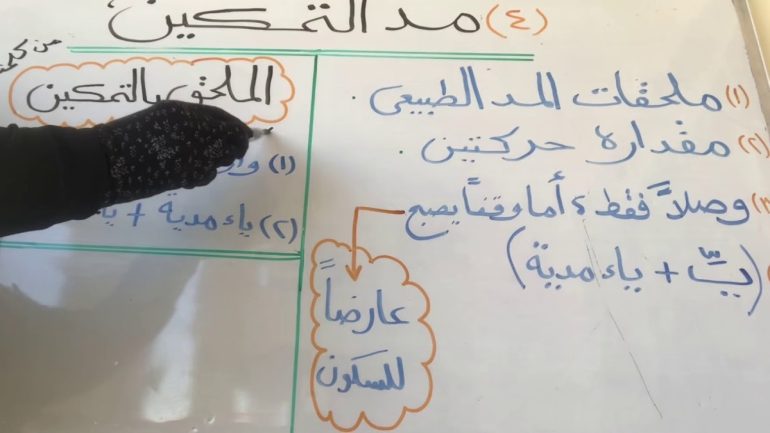 (٤) مد التمكين
(١) ملحقات المد الطبيعي .
(٢) مقداره حركتين .
وصلاً فقط ، أما وقفاً يصبح
عارضاً
للسكون
(يِّ + ياء مدية)
من كلمة
الملحق بالتمكين
(١)
(٢) ياء مدية +